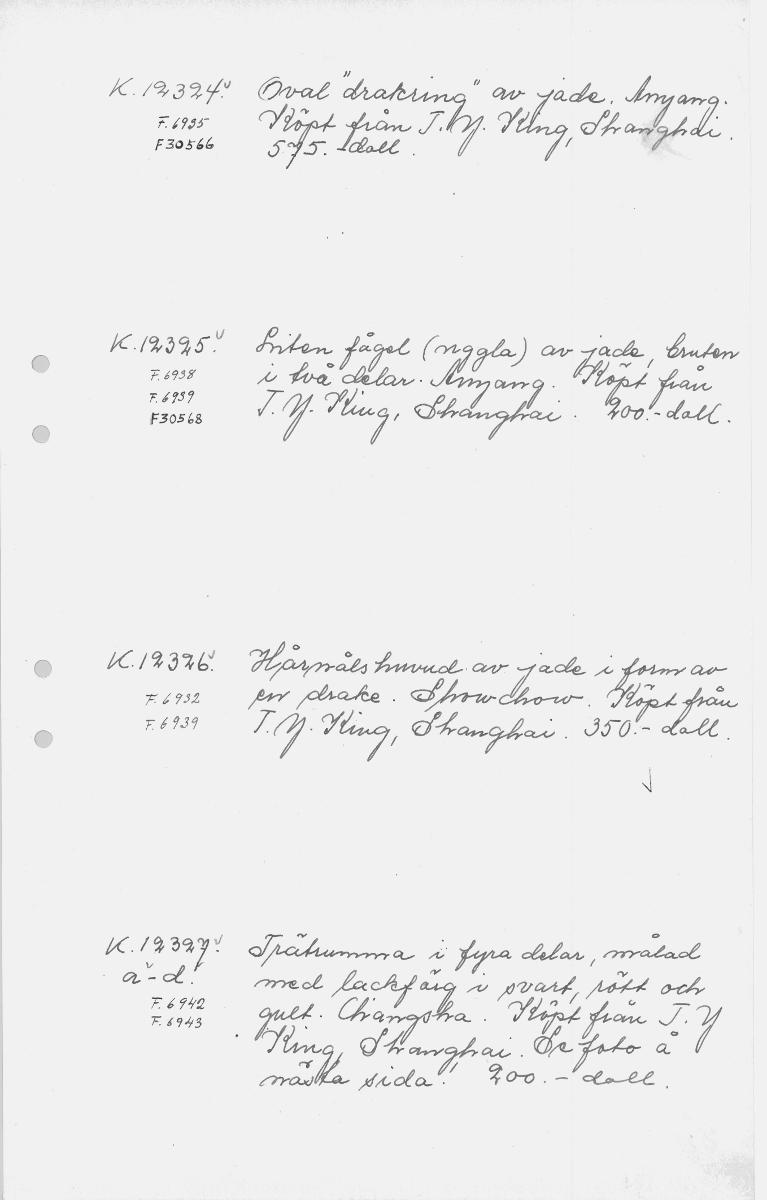 K.12324. Oval "drakring" av jade. Anyang.
F.6935 Köpt från T.Y. King, Shanghai.
F30566 575.-doll.
K.12325. Liten fågel (uggla) av jade, bruten
F.6938 i två delar. Anyang. Köpt från
F.6939 T.Y. King, Shanghai. 200.-doll.
F30568
K.12326. Hårnålshuvud av jade i form av
F.6932 en drake. Showchow. Köpt från
F.6939 T.Y. King, Shanghai. 350.- doll.
K.12327. Trätrumma i fyra delar, målad
a-d. med lackfärg i svart, rött och
F.6942 gult. Changsha. Köpt från T.Y
F.6943 King, Shanghai. Se foto å
nästa sida! 200.- doll.